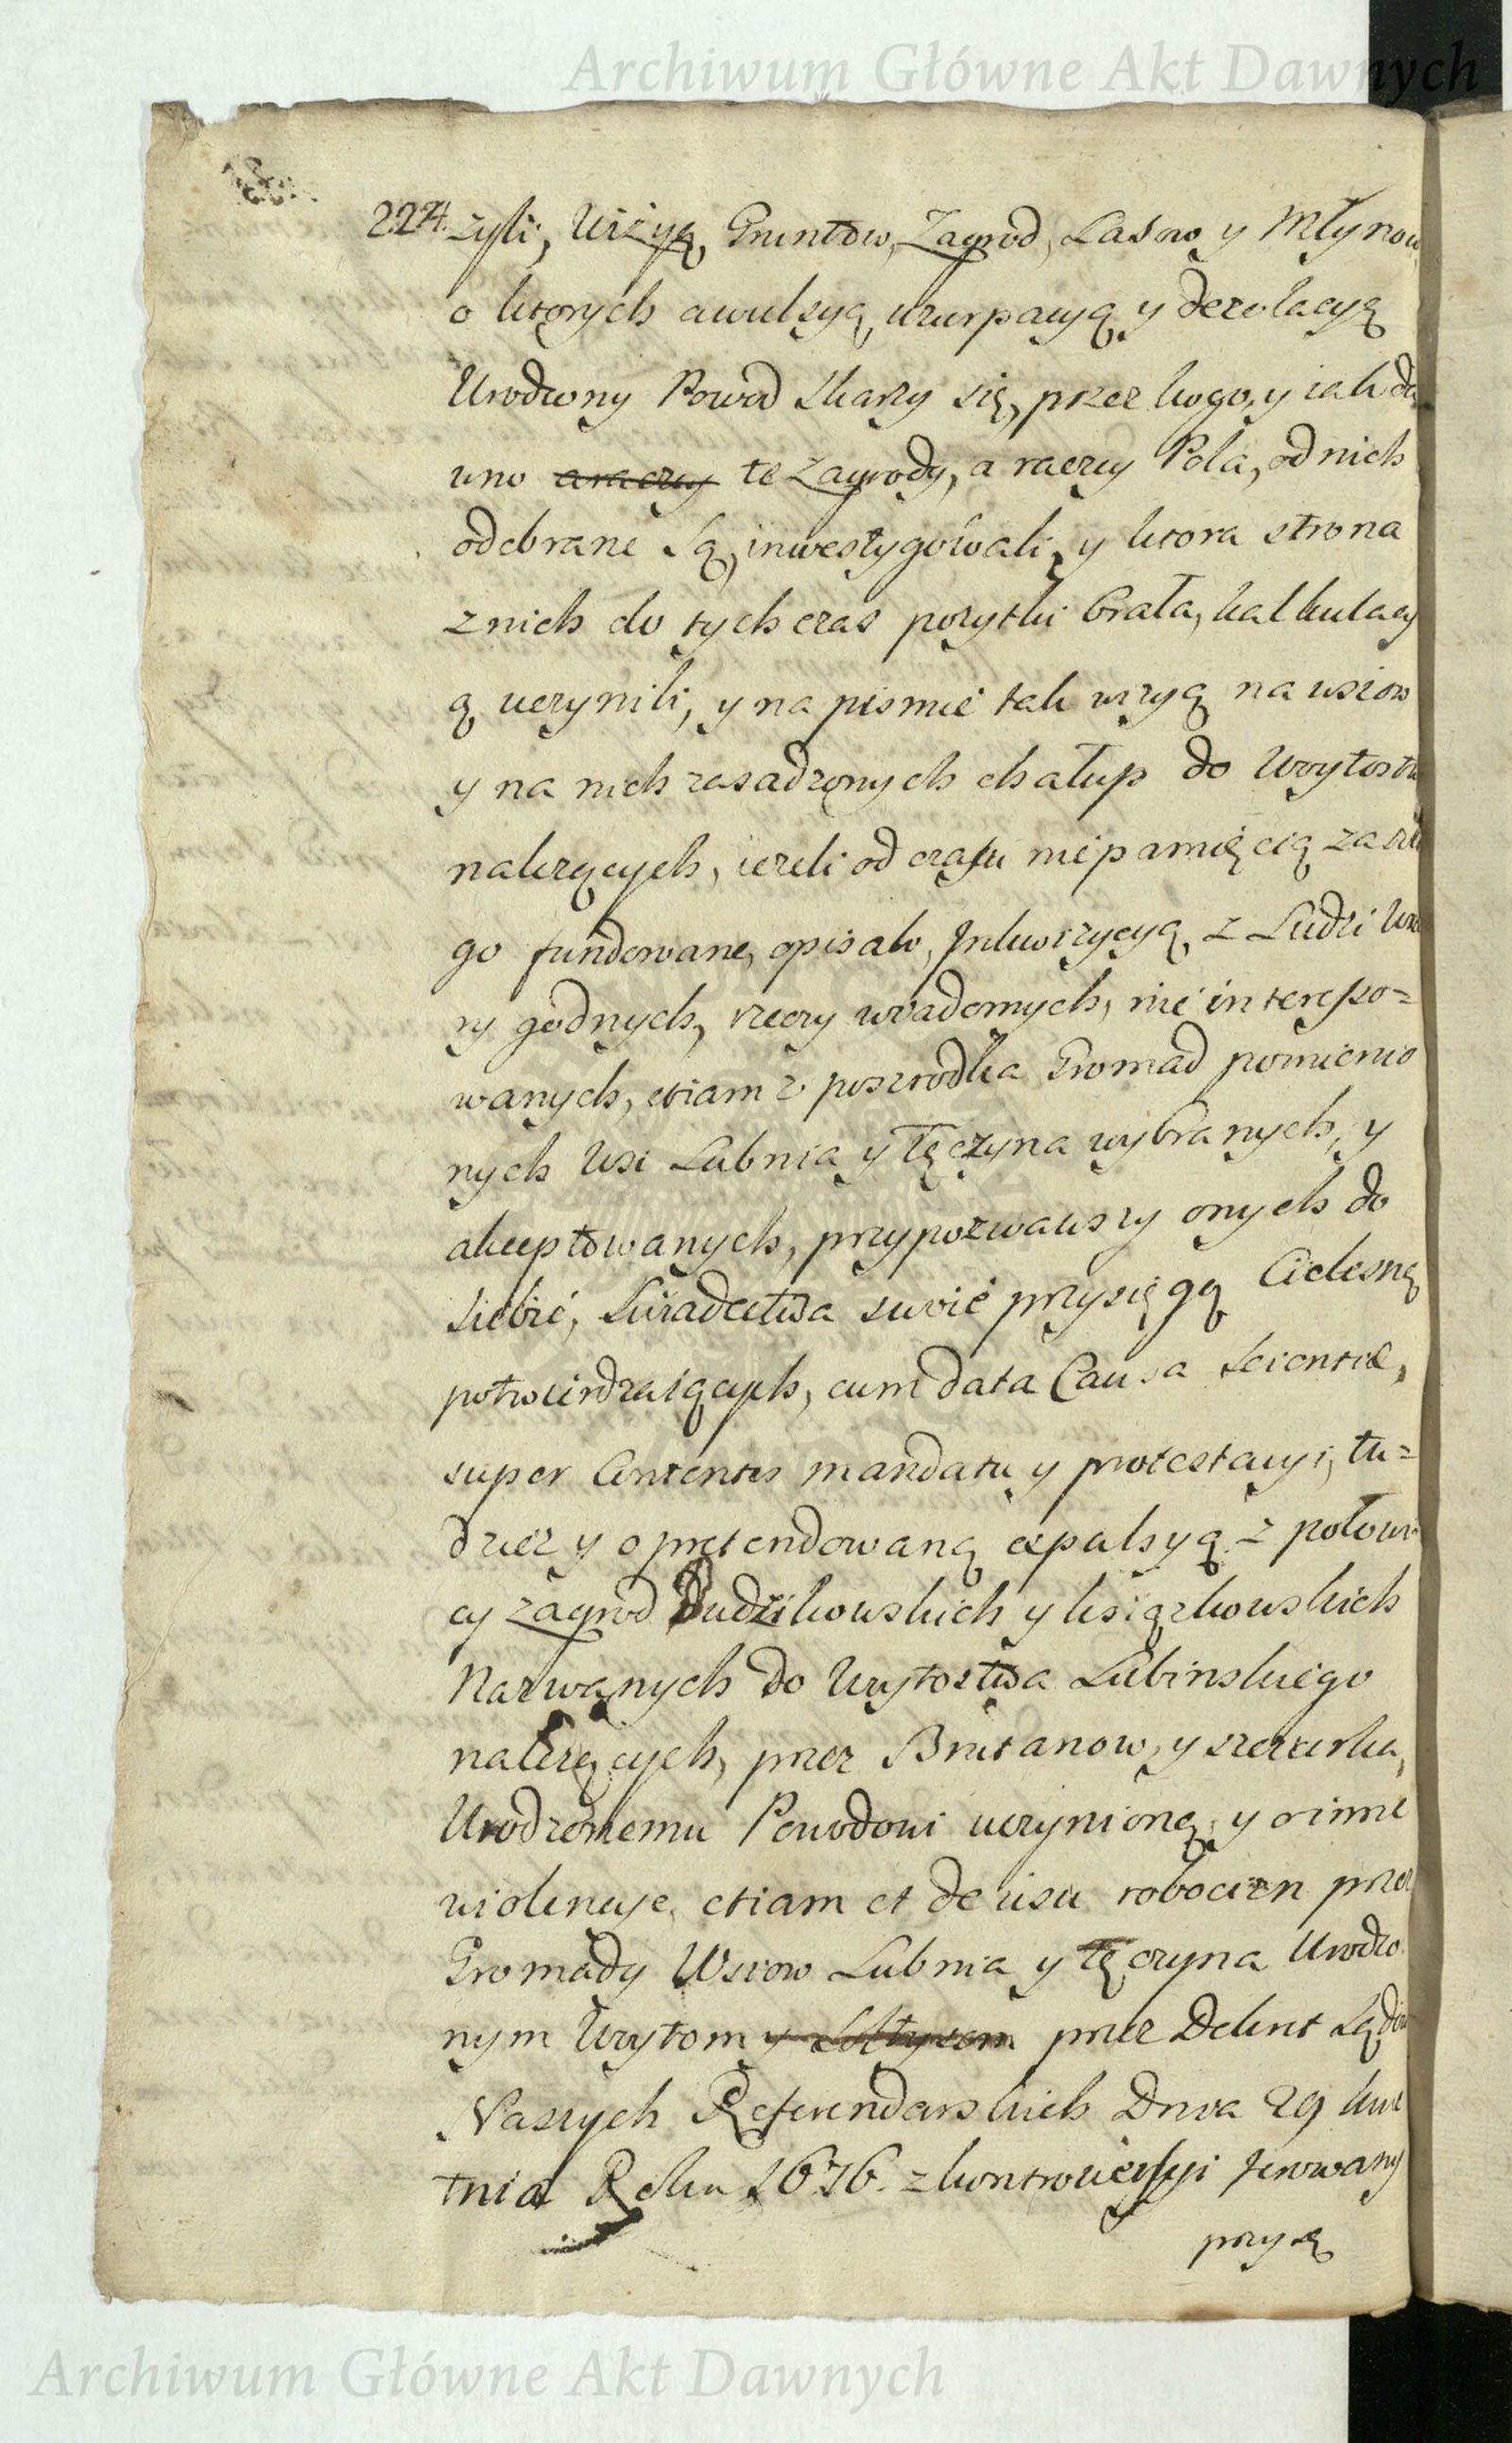 Archiwum Główne Akt Dawnych
224. zyli, Wizyą, Gruntow, Zagrod, Lasow y Młynow
o ktorych awulsyą, uzurpacyą y dezolacyą
Urodzony Powod skarzy się, przez kogo, y iak da
wno a raczey te Zagrody, a raczey Pola, od nich
odebrane są, inwestygowali, y ktora strona
z nich do tych czas pozytki brała, kalkulacy
ą uczynili, y na pismie tak wizyą na wsiow
y na nich zasadzonych chałup do Woytostw
nalezących, iezeli od czasu niepamięcią zaszłe
go fundowane, opisaw, Inkwizycyą, z Ludzi wia
ry godnych, rzeczy wiadomych, nie interesso=
wanych, etiam z poszrodka Gromad pomienio
nych Wsi Lubnia y Tęczyna wybranych, y
akceptowanych, przypozwawszy onych do
siebie, swiadectwa swoie przysięgą Cielesną
potwierdzaiących, cum data Causa scientiæ,
super Contentis mandatu y protestacyi, tu=
dziez y o pretendowaną expulsyą z połowi
cy zagrod Dudzikowskich y Książkowskich
Nazwanych do Woytostwa Lubinskiego
nalezących, przez Bristanow, y szczerka,
Urodzonemu Powodowi uczynioną, y o inne
wiolencye, etiam et de usu robocizn przez
Gromady Wsiow Lubnia y Tęczyna Urodzo
nym Woytom y Sołtysom przez Dekret Sądow
Naszych Referendarskich Dnia 29 kwie
tnia Roku 1676. z kontrowersyi ferowany
przysą
Archiwum Główne Akt Dawnych